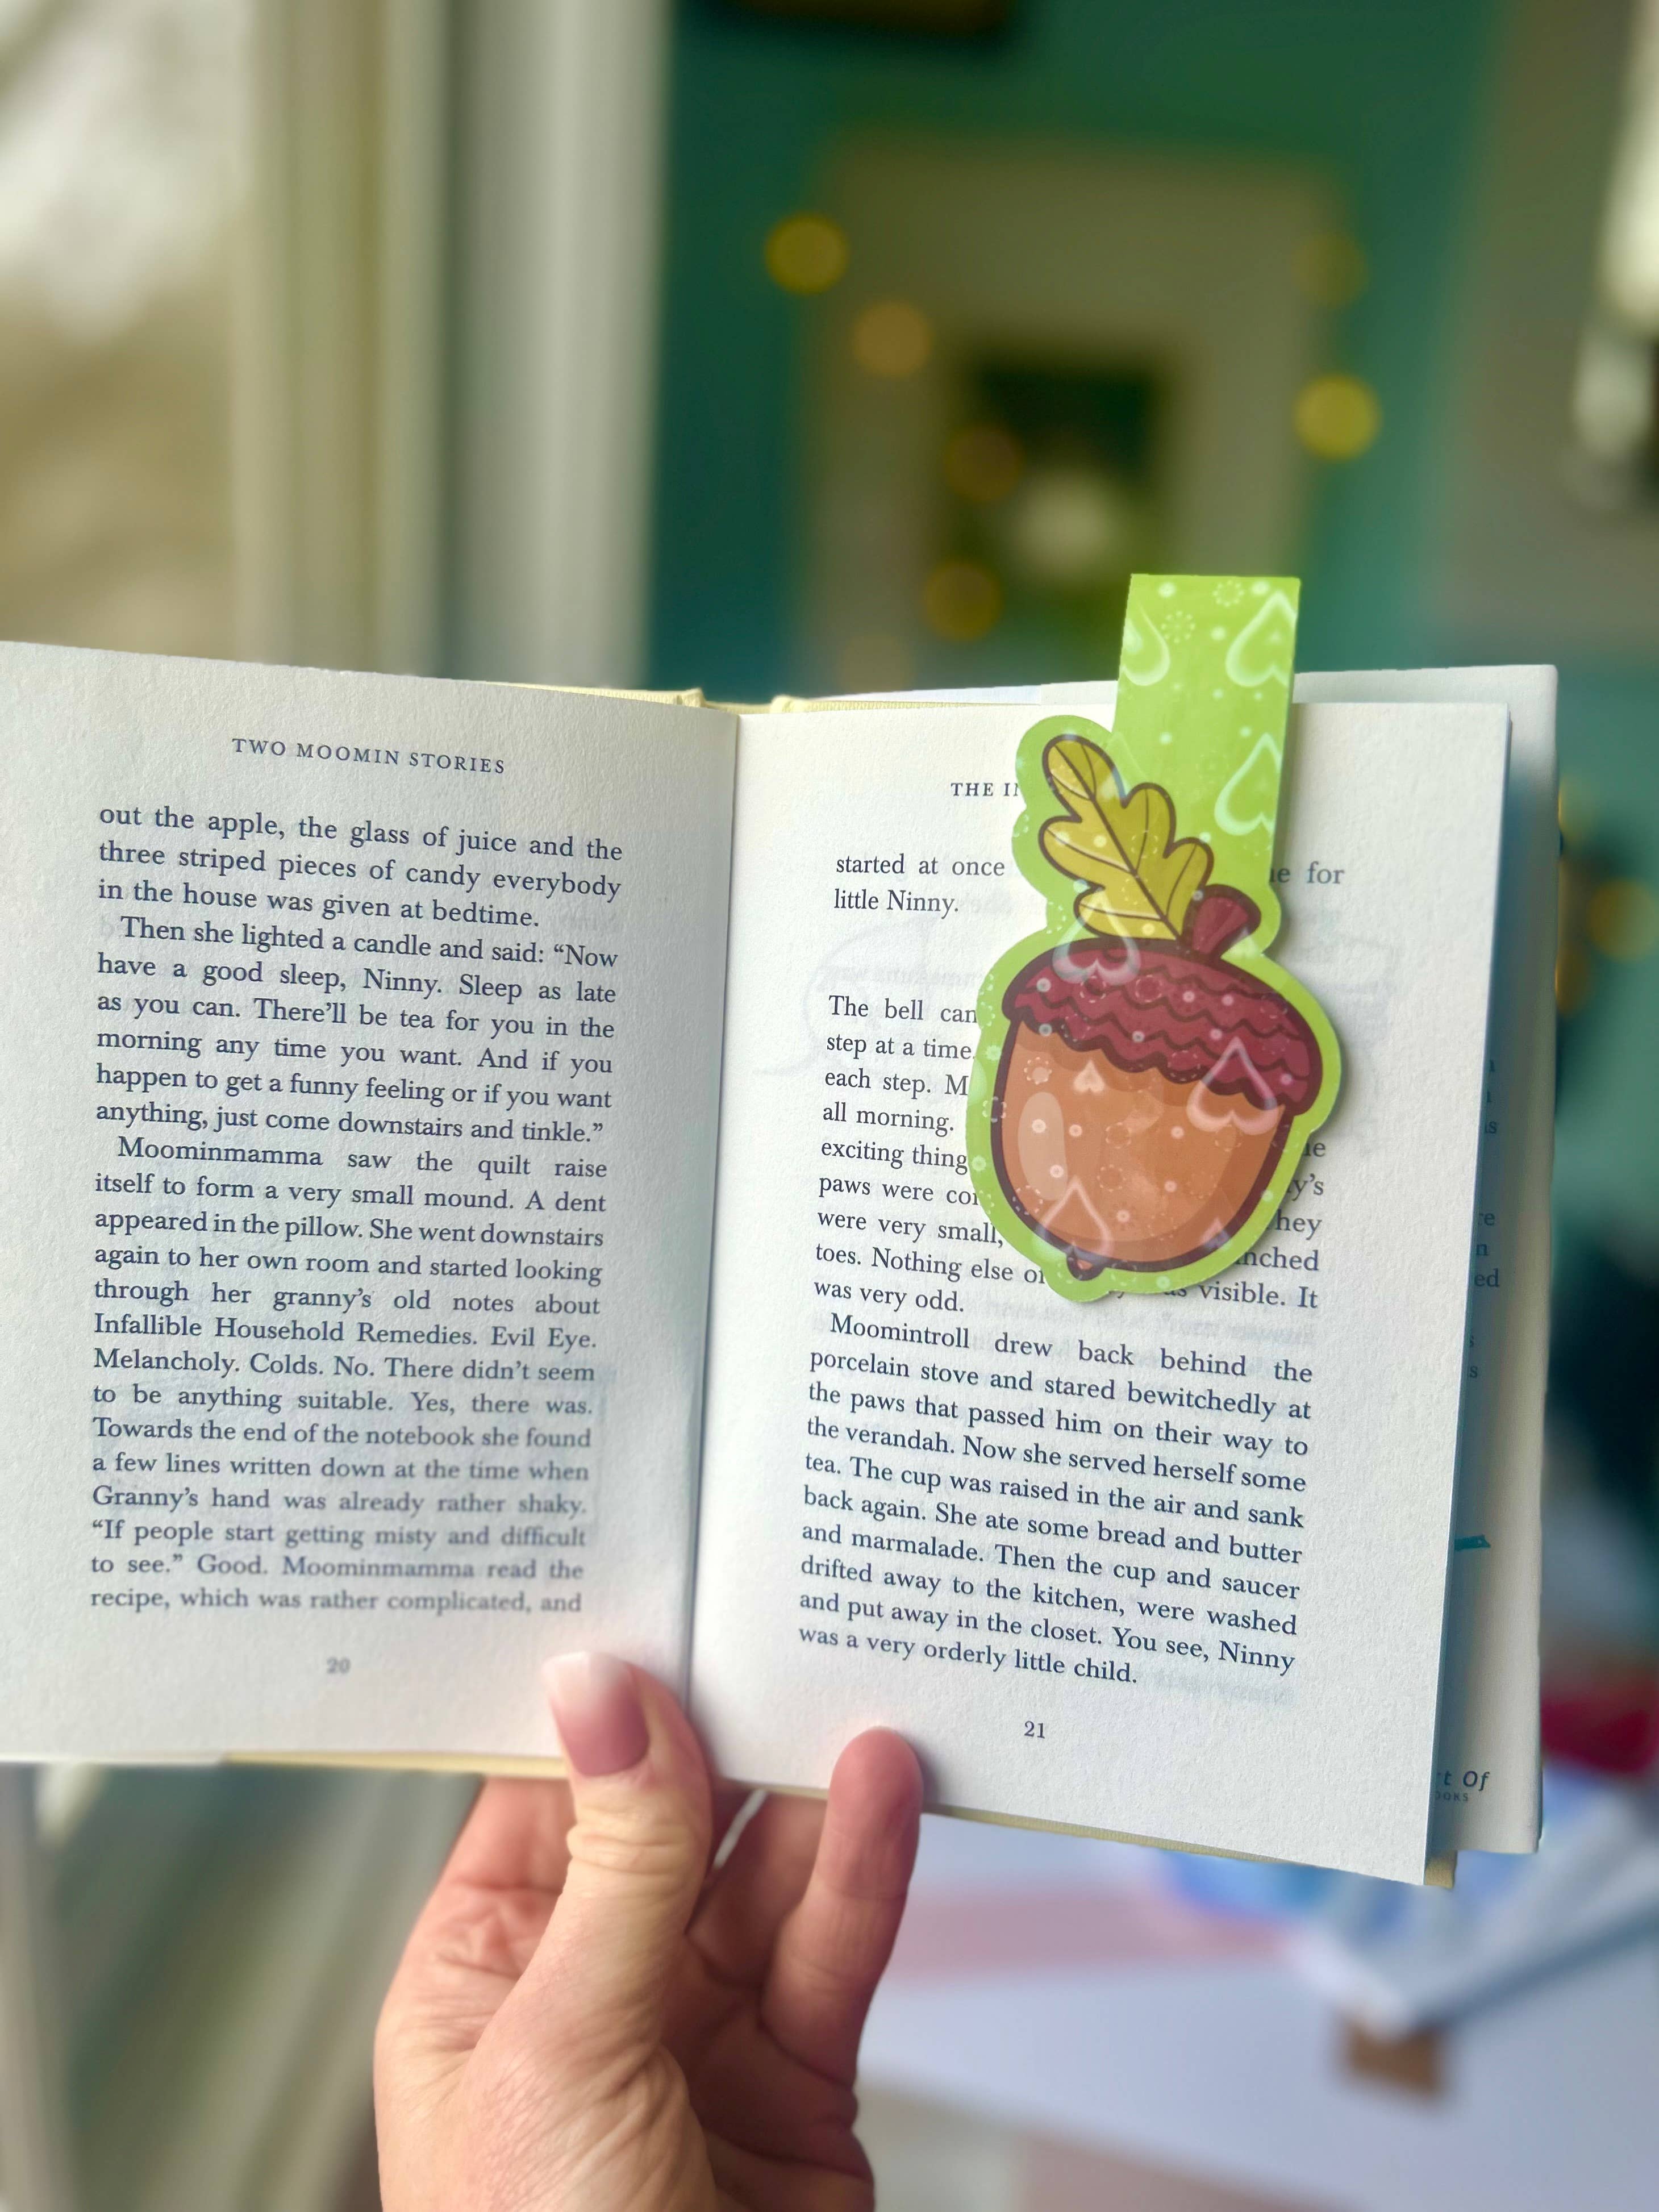 TWO MOOMIN STORIES
out the apple, the glass of juice and the
three striped pieces of candy everybody
in the house was given at bedtime.
Then she lighted a candle and said: “Now
have a good sleep, Ninny. Sleep as late
as you can. There’ll be tea for you in the
morning any time you want. And if you
happen to get a funny feeling or if you want
anything, just come downstairs and tinkle.”
Moominmamma saw the quilt raise
itself to form a very small mound. A dent
appeared in the pillow. She went downstairs
again to her own room and started looking
through her granny’s old notes about
Infallible Household Remedies. Evil Eye.
Melancholy. Colds. No. There didn’t seem
to be anything suitable. Yes, there was.
Towards the end of the notebook she found
a few lines written down at the time when
Granny’s hand was already rather shaky.
“If people start getting misty and difficult
to see.” Good. Moominmamma read the
recipe, which was rather complicated, and
20
THE
started at once for
little Ninny.
The bell
step at a time.
each step.
all morning.
exciting
paws were
were very small,
toes. Nothing else visible. It
was very odd.
Moomintroll drew back behind the
porcelain stove and stared bewitchedly at
the paws that passed him on their way to
the verandah. Now she served herself some
tea. The cup was raised in the air and sank
back again. She ate some bread and butter
and marmalade. Then the cup and saucer
drifted away to the kitchen, were washed
and put away in the closet. You see, Ninny
was a very orderly little child.
21
Of